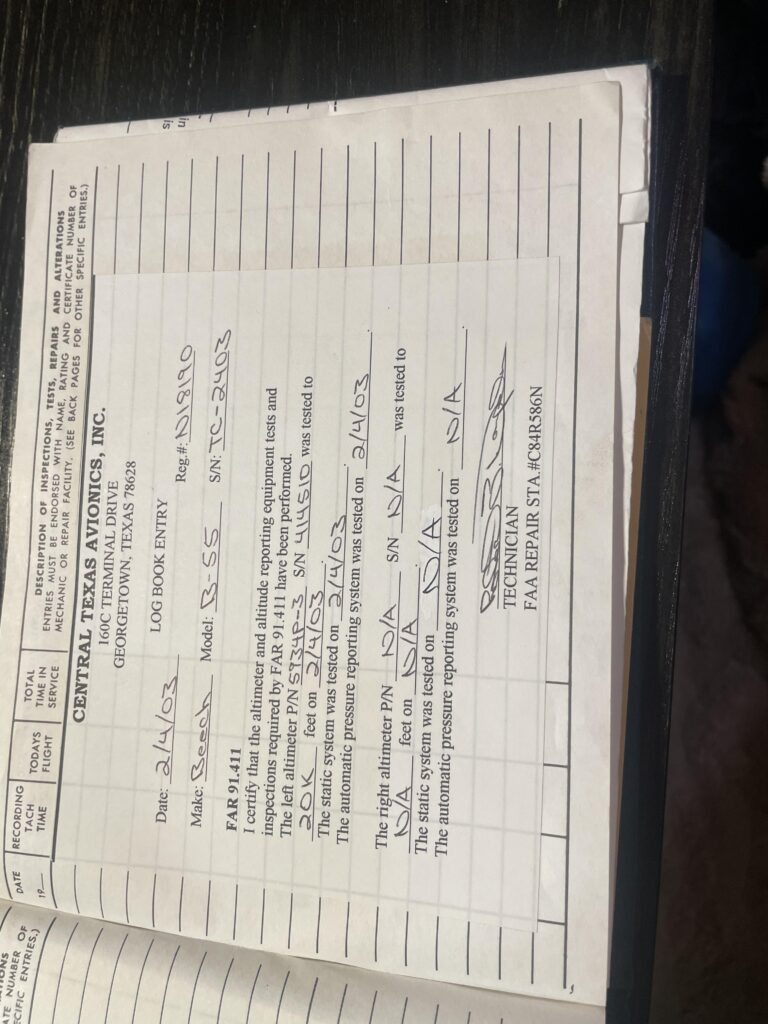 ATIONS
ATE NUMBER OF
ECIFIC ENTRIES.)
DATE
19
RECORDING
TACH
TIME
TODAYS
FLIGHT
TOTAL
TIME IN
SERVICE
DESCRIPTION OF INSPECTIONS, TESTS, REPAIRS AND ALTERATIONS
ENTRIES MUST BE ENDORSED WITH NAME, RATING AND CERTIFICATE NUMBER OF
MECHANIC OR REPAIR FACILITY. (SEE BACK PAGES FOR OTHER SPECIFIC ENTRIES.)
CENTRAL TEXAS AVIONICS, INC.
160C TERMINAL DRIVE
GEORGETOWN, TEXAS 78628
LOG BOOK ENTRY
Date: 2/4/03 Reg.#: N18190
Make: Beech Model: B-55 S/N: TC-2403
FAR 91.411
I certify that the altimeter and altitude reporting equipment tests and
inspections required by FAR 91.411 have been performed.
The left altimeter P/N 5934P-3 S/N 414510 was tested to
20K feet on 2/4/03.
The static system was tested on 2/4/03.
The automatic pressure reporting system was tested on 2/4/03.
The right altimeter P/N N/A S/N N/A was tested to
N/A feet on N/A.
The static system was tested on N/A.
The automatic pressure reporting system was tested on N/A.
TECHNICIAN
FAA REPAIR STA.#C84R586N
in
is